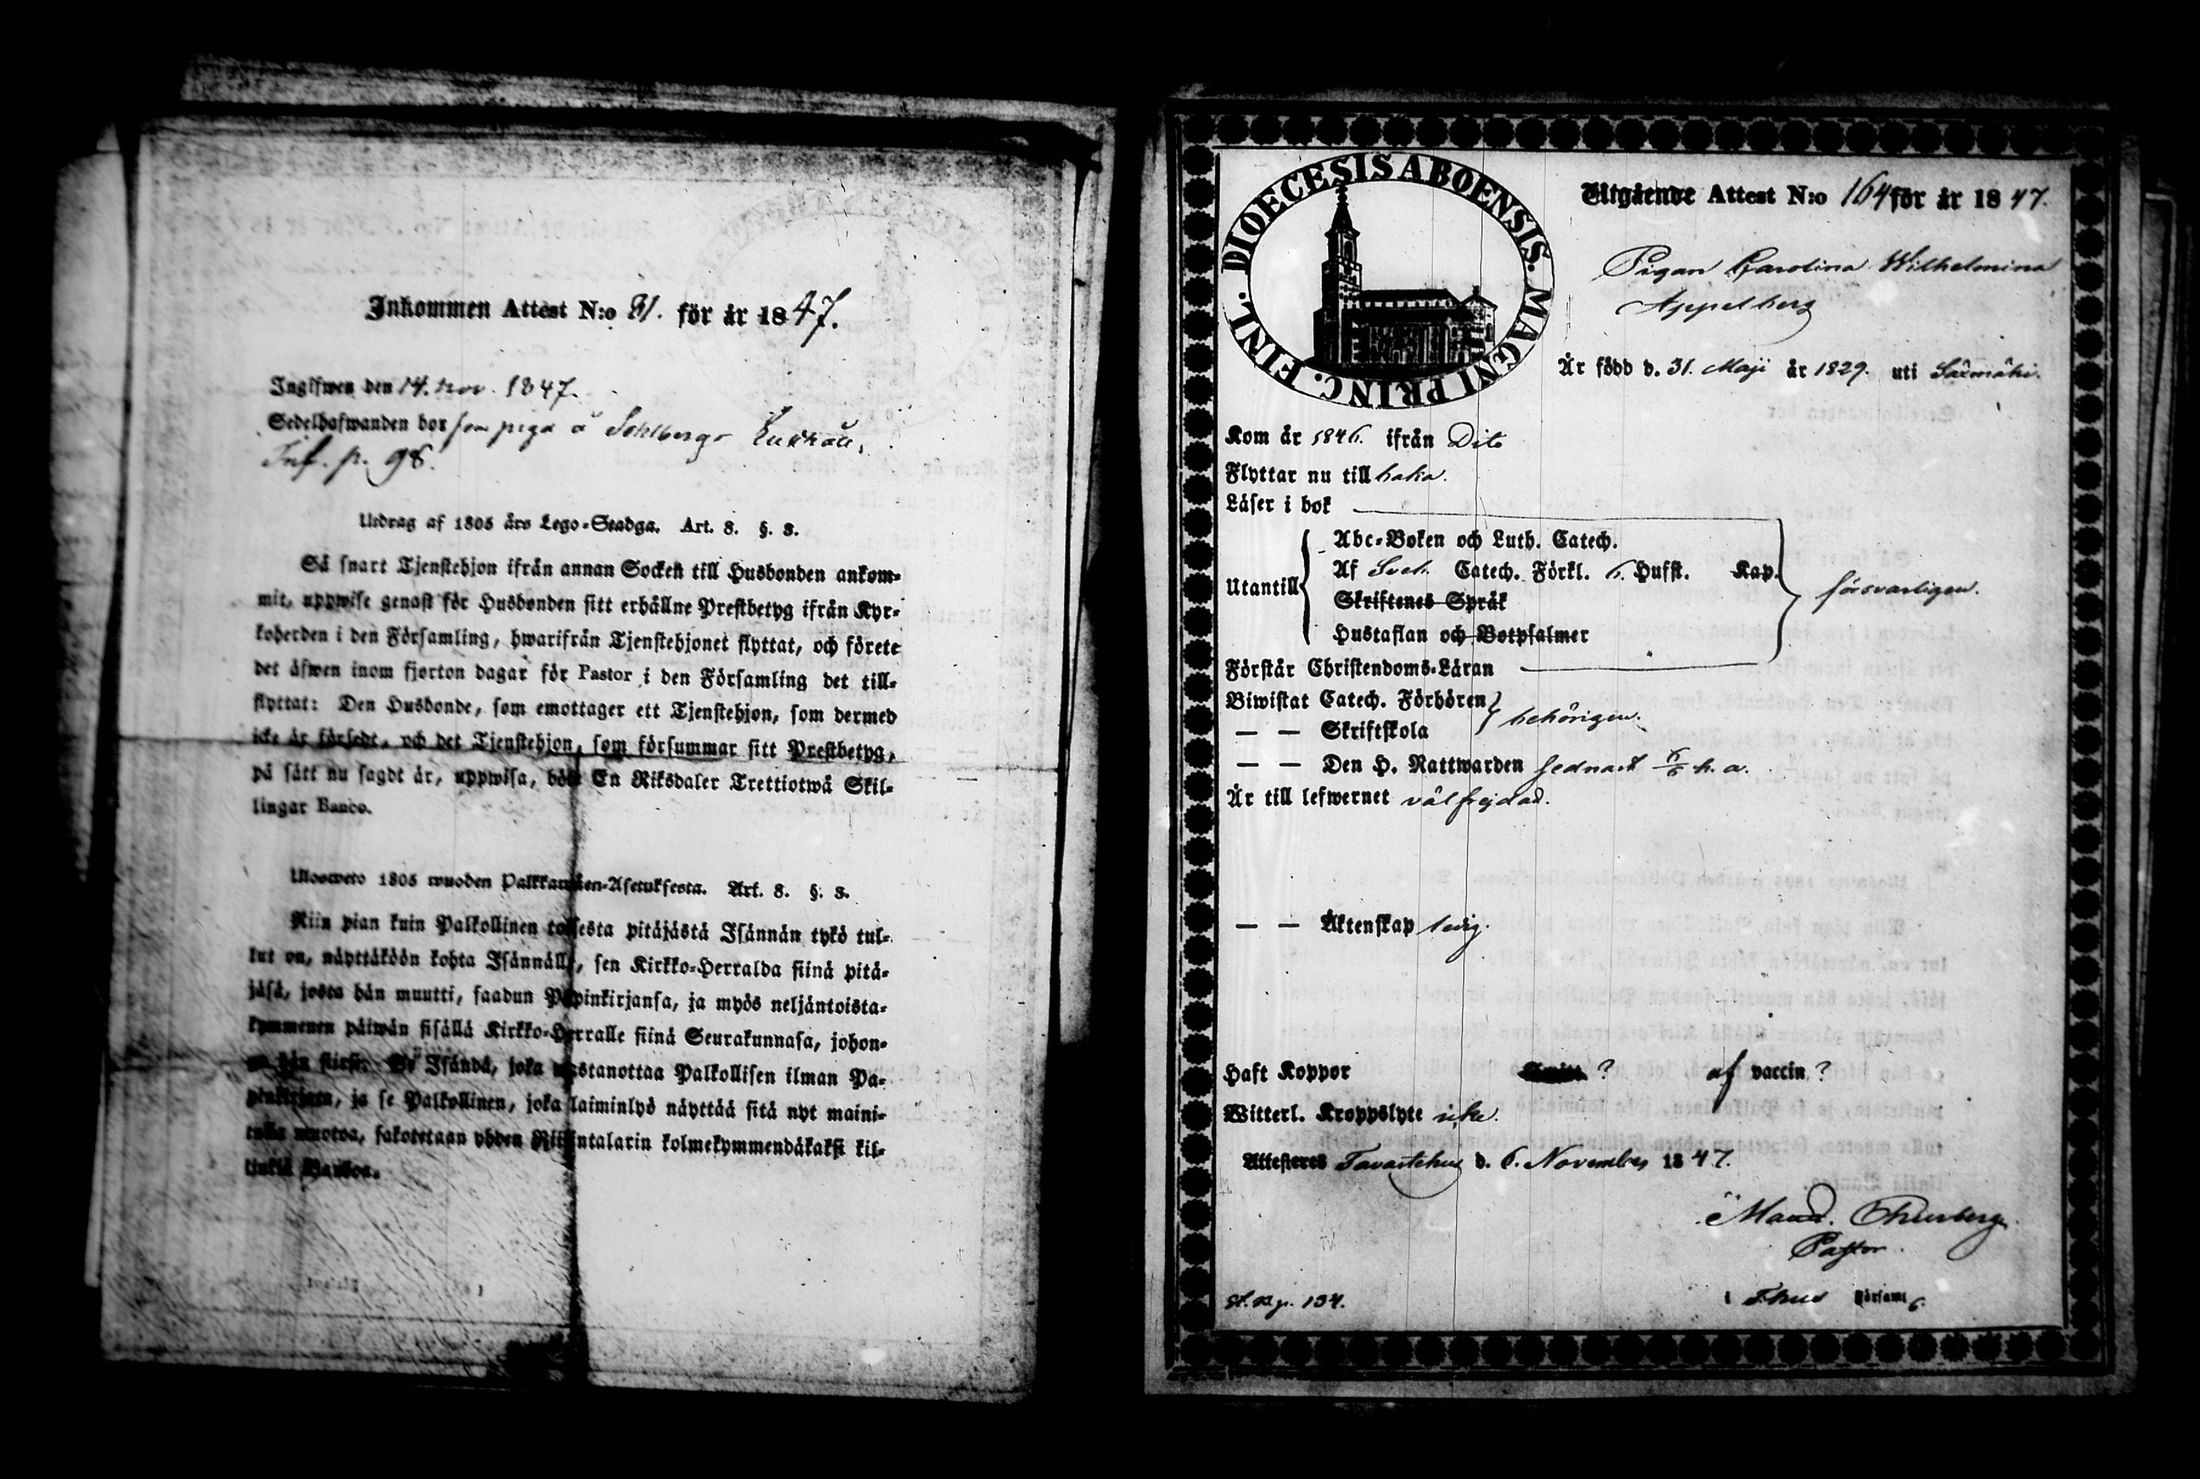 Inkommen Attest N:o 91. för år 1847.
Ingifwen den 14. nov. 1847.
Sedelhafwanden bor som piga å Sohlbergs
Inf. p. 98.
Utdrag af 1805 års Lego-Stadga. Art. 8. §. 3.
Så snart Tjenstehjon ifrån annan Socken till Husbonden ankom-
mit, uppwise genast för Husbonden sitt erhållne Prestbetyg ifrån Kyr-
koherden i den Församling, hwarifrån Tjenstehjonet flyttat, och förete
det äfwen inom fjorton dagar för Pastor i den Församling det till-
flyttat: Den Husbonde, som emottager ett Tjenstehjon, som dermed
icke är försedt, och det Tjenstehjon, som försummar sitt Prestbetyg,
på sätt nu sagdt är, uppwisa, böte En Riksdaler Trettiotwå Skil-
lingar Banco.
Ulosweto 1805 wuoden Palkkawäen-Asetuksesta. Art. 8. §. 3.
Niin pian kuin Palkollinen toisesta pitäjästä Isännän tykö tul-
lut on, näyttäköön kohta Isännälle, sen Kirkko-Herralda siinä pitä-
jäsä, josta hän muutti, saadun Papinkirjansa, ja myös neljäntoista-
kymmenen päiwän sisällä Kirkko-Herralle siinä Seurakunnasa, johon-
ga hän siirsi. Se Isändä, joka wastanottaa Palkollisen ilman Pa-
pinkirjata, ja se Palkollinen, joka laiminlyö näyttää sitä nyt maini-
tulla muotoa, sakotetaan yhden Riikintalarin kolmekymmendäkaksi kil-
linkiä Bankoa.
DIOECESIS ABOENSIS. MAGNI PRINC. FINL.
Utgående Attest N:o 164 för år 1847.
Pigan Carolina Wilhelmina
Appelberg
Är född d. 31. Maji år 1829. uti Sääxmäki.
Kom år 1846. ifrån Dito
Flyttar nu till
Läser i bok
Abc-Boken och Luth. Catech.
Af Sveb. Catech. Förkl. 6. Hufst. Kap.
Utantill försvarligen.
Skriftenes Språk
Hustaflan och Botpsalmer
Förstår Christendoms-Läran
Biwistat Catech. Förhören
behörigen.
— — Skriftskola
— — Den H. Nattwarden sednast 6/6 h. a.
Är till lefwernet välfrejdad.
— — Äktenskap ledig.
Haft Koppor ? af vaccin ?
Witterl. Kroppslyte icke.
Attesteres Tavastehus d. 6. November 1847.
Pastor.
i T:hus Församl.
134.